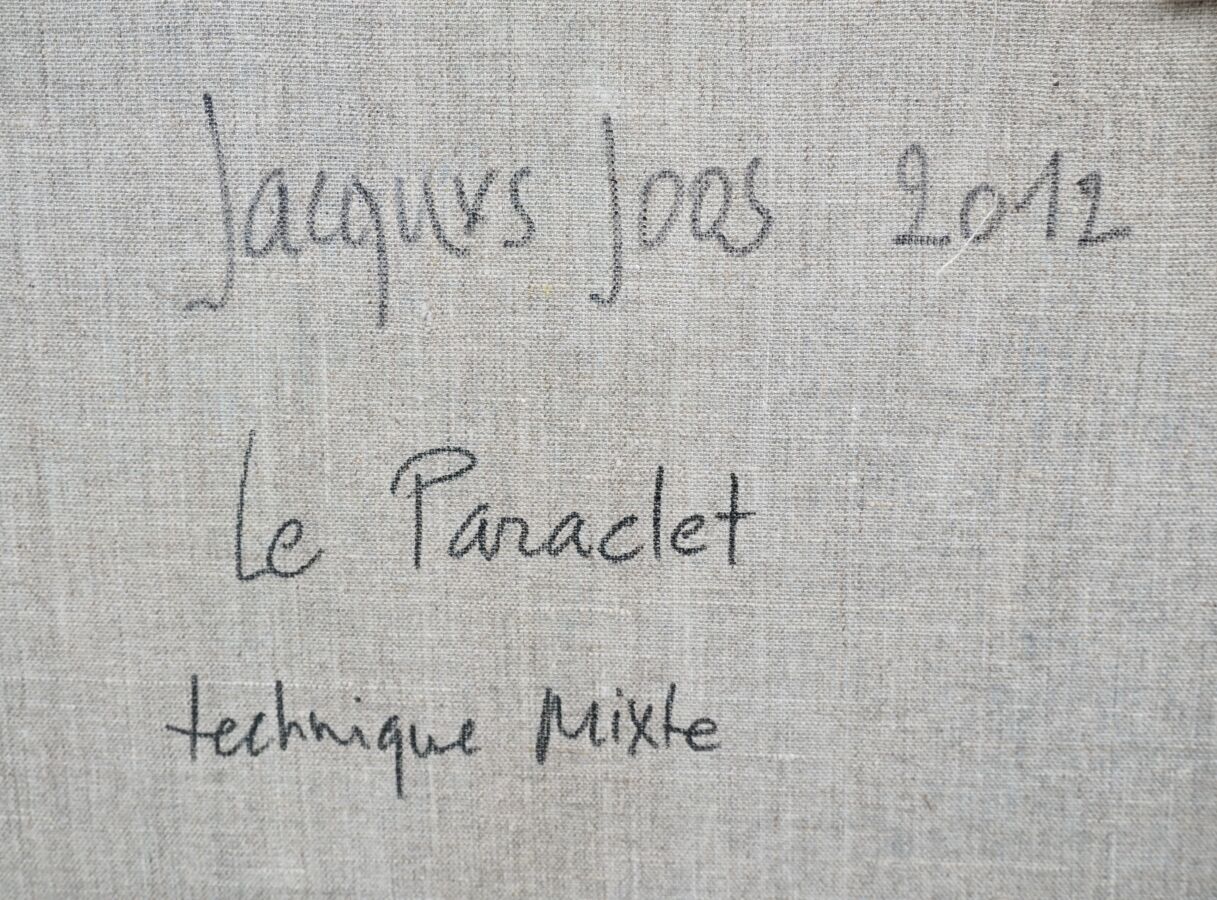 Jacques Joos 2012
Le Paraclet
technique Mixte